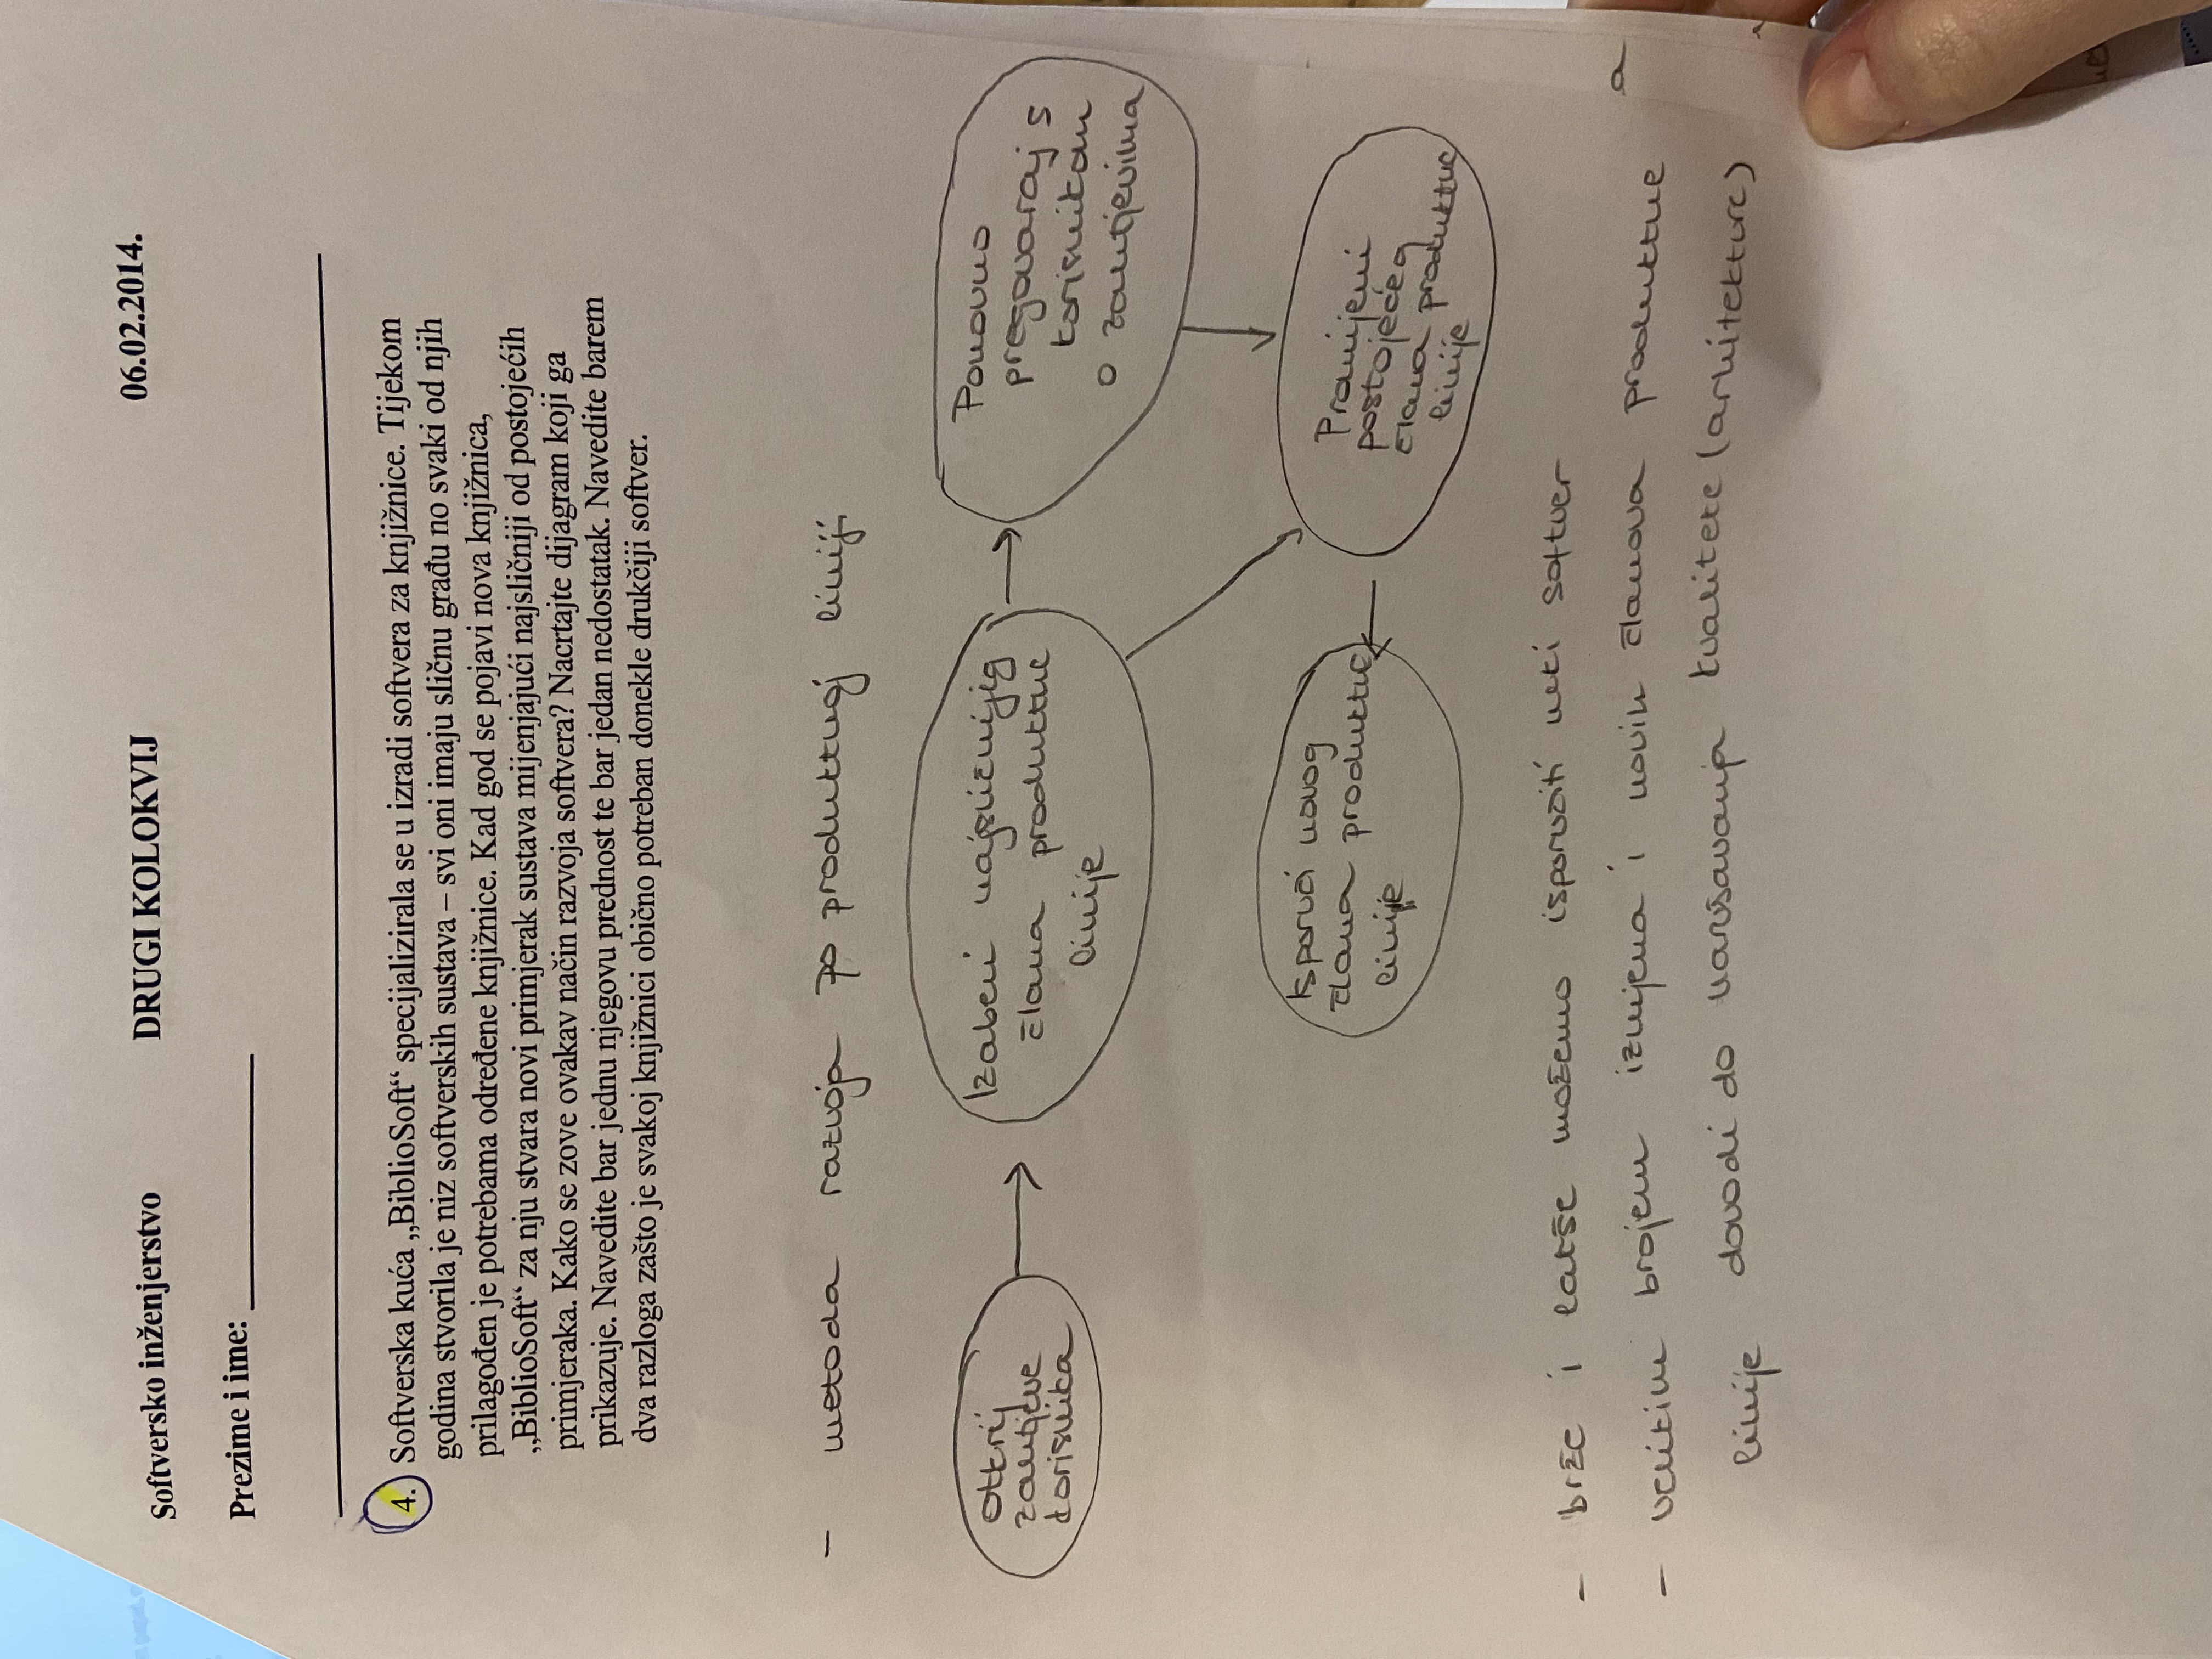 Softversko inženjerstvo DRUGI KOLOKVIJ 06.02.2014.
Prezime i ime: ______________
4. Softverska kuća „BiblioSoft“ specijalizirala se u izradi softvera za knjižnice. Tijekom
godina stvorila je niz softverskih sustava – svi oni imaju sličnu građu no svaki od njih
prilagođen je potrebama određene knjižnice. Kad god se pojavi nova knjižnica,
„BiblioSoft“ za nju stvara novi primjerak sustava mijenjajući najsličniji od postojećih
primjeraka. Kako se zove ovakav način razvoja softvera? Nacrtajte dijagram koji ga
prikazuje. Navedite bar jednu njegovu prednost te bar jedan nedostatak. Navedite barem
dva razloga zašto je svakoj knjižnici obično potreban donekle drukčiji softver.
- metoda razvoja po produktnoj liniji
Otkrij
zahtjeve
korisnika
Izaberi najsličnijeg
člana produktne
linije
Ponovno
pregovaraj s
korisnikom
o zahtjevima
Isporuči novog
člana produktne
linije
Promijeni
postojećeg
člana produktne
linije
- brže i lakše možemo isporučiti neki softver
- velikim brojem izmjena i novih članova produktne a
linije dovodi do narušavanja kvalitete (arhitekture)